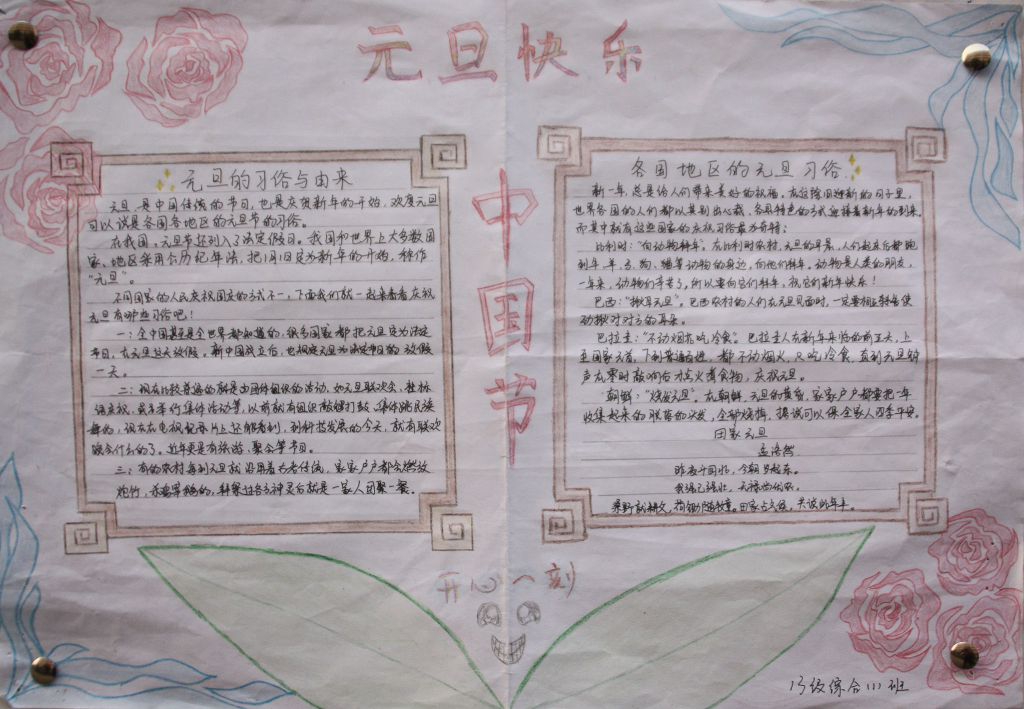 元旦快乐
中国节
元旦的习俗与由来
元旦,是中国传统的节日,也是庆贺新年的开始,欢度元旦
可以说是各国各地区的元旦节的习俗。
在我国,元旦节还列入了法定假日。我国和世界上大多数国
家、地区采用公历纪年法,把1月1日定为新年的开始,称作
“元旦”。
不同国家的人民庆祝国友的方式不一,下面我们就一起来看看庆祝
元旦有哪些习俗吧!
一:全中国甚至是全世界都知道的,很多国家都把元旦定为法定
节日,在元旦当天放假。新中国成立后,也规定元旦为法定节日的放假
一天。
二:现在比较普遍的就是由团体组织的活动,如元旦联欢会、挂标
语庆祝、或者举行集体活动等,以前就有组织敲锣打鼓、集体跳民族
舞的,现在在电视纪录片上还能看到,到科技发展的今天,就有联欢
晚会什么的了。近年更是有旅游、聚会等节目。
三:有的农村每到元旦就沿用着古老传统,家家户户都会燃放
炮竹,杀鸡宰鹅的,拜祭过各方神灵后就是一家人团聚一餐。
各国地区的元旦习俗
新一年总是给人们带来美好的祝福,在这除旧迎新的日子里,
世界各国的人们都以其别出心裁、各具特色的方式迎接着新年的到来,
而其中就有这些国家的庆祝习俗最为奇特:
比利时:“向动物拜年”。在比利时农村,元旦的早晨,人们起床后都跑
到牛、羊、马、狗、猫等动物的身边,向他们拜年。动物是人类的朋友,
一年来,动物们辛苦了,所以要向它们拜年,祝它们新年快乐!
巴西:“揪耳元旦”。巴西农村的人们在元旦见面时,一定要相互
动揪对方的耳朵。
巴拉圭:“不动烟火吃冷食”。巴拉圭人在新年来临的前五天,上
至国家元首,下到普通百姓,都不动烟火,只吃冷食,直到元旦钟
声在零时敲响后才点火煮食物,庆祝元旦。
朝鲜:“烧发元旦”。在朝鲜,元旦的黄昏,家家户户都要把一年
收集起来的脱落的头发,全部烧掉,据说可以保全家人四季平安。
田家元旦
孟浩然
昨夜斗回北,今朝岁起东。
我强已强壮,无禄尚优农。
桑野就耕父,荷锄随牧童。田家占气候,共说此年丰。
开心一刻
13级综合(1)班